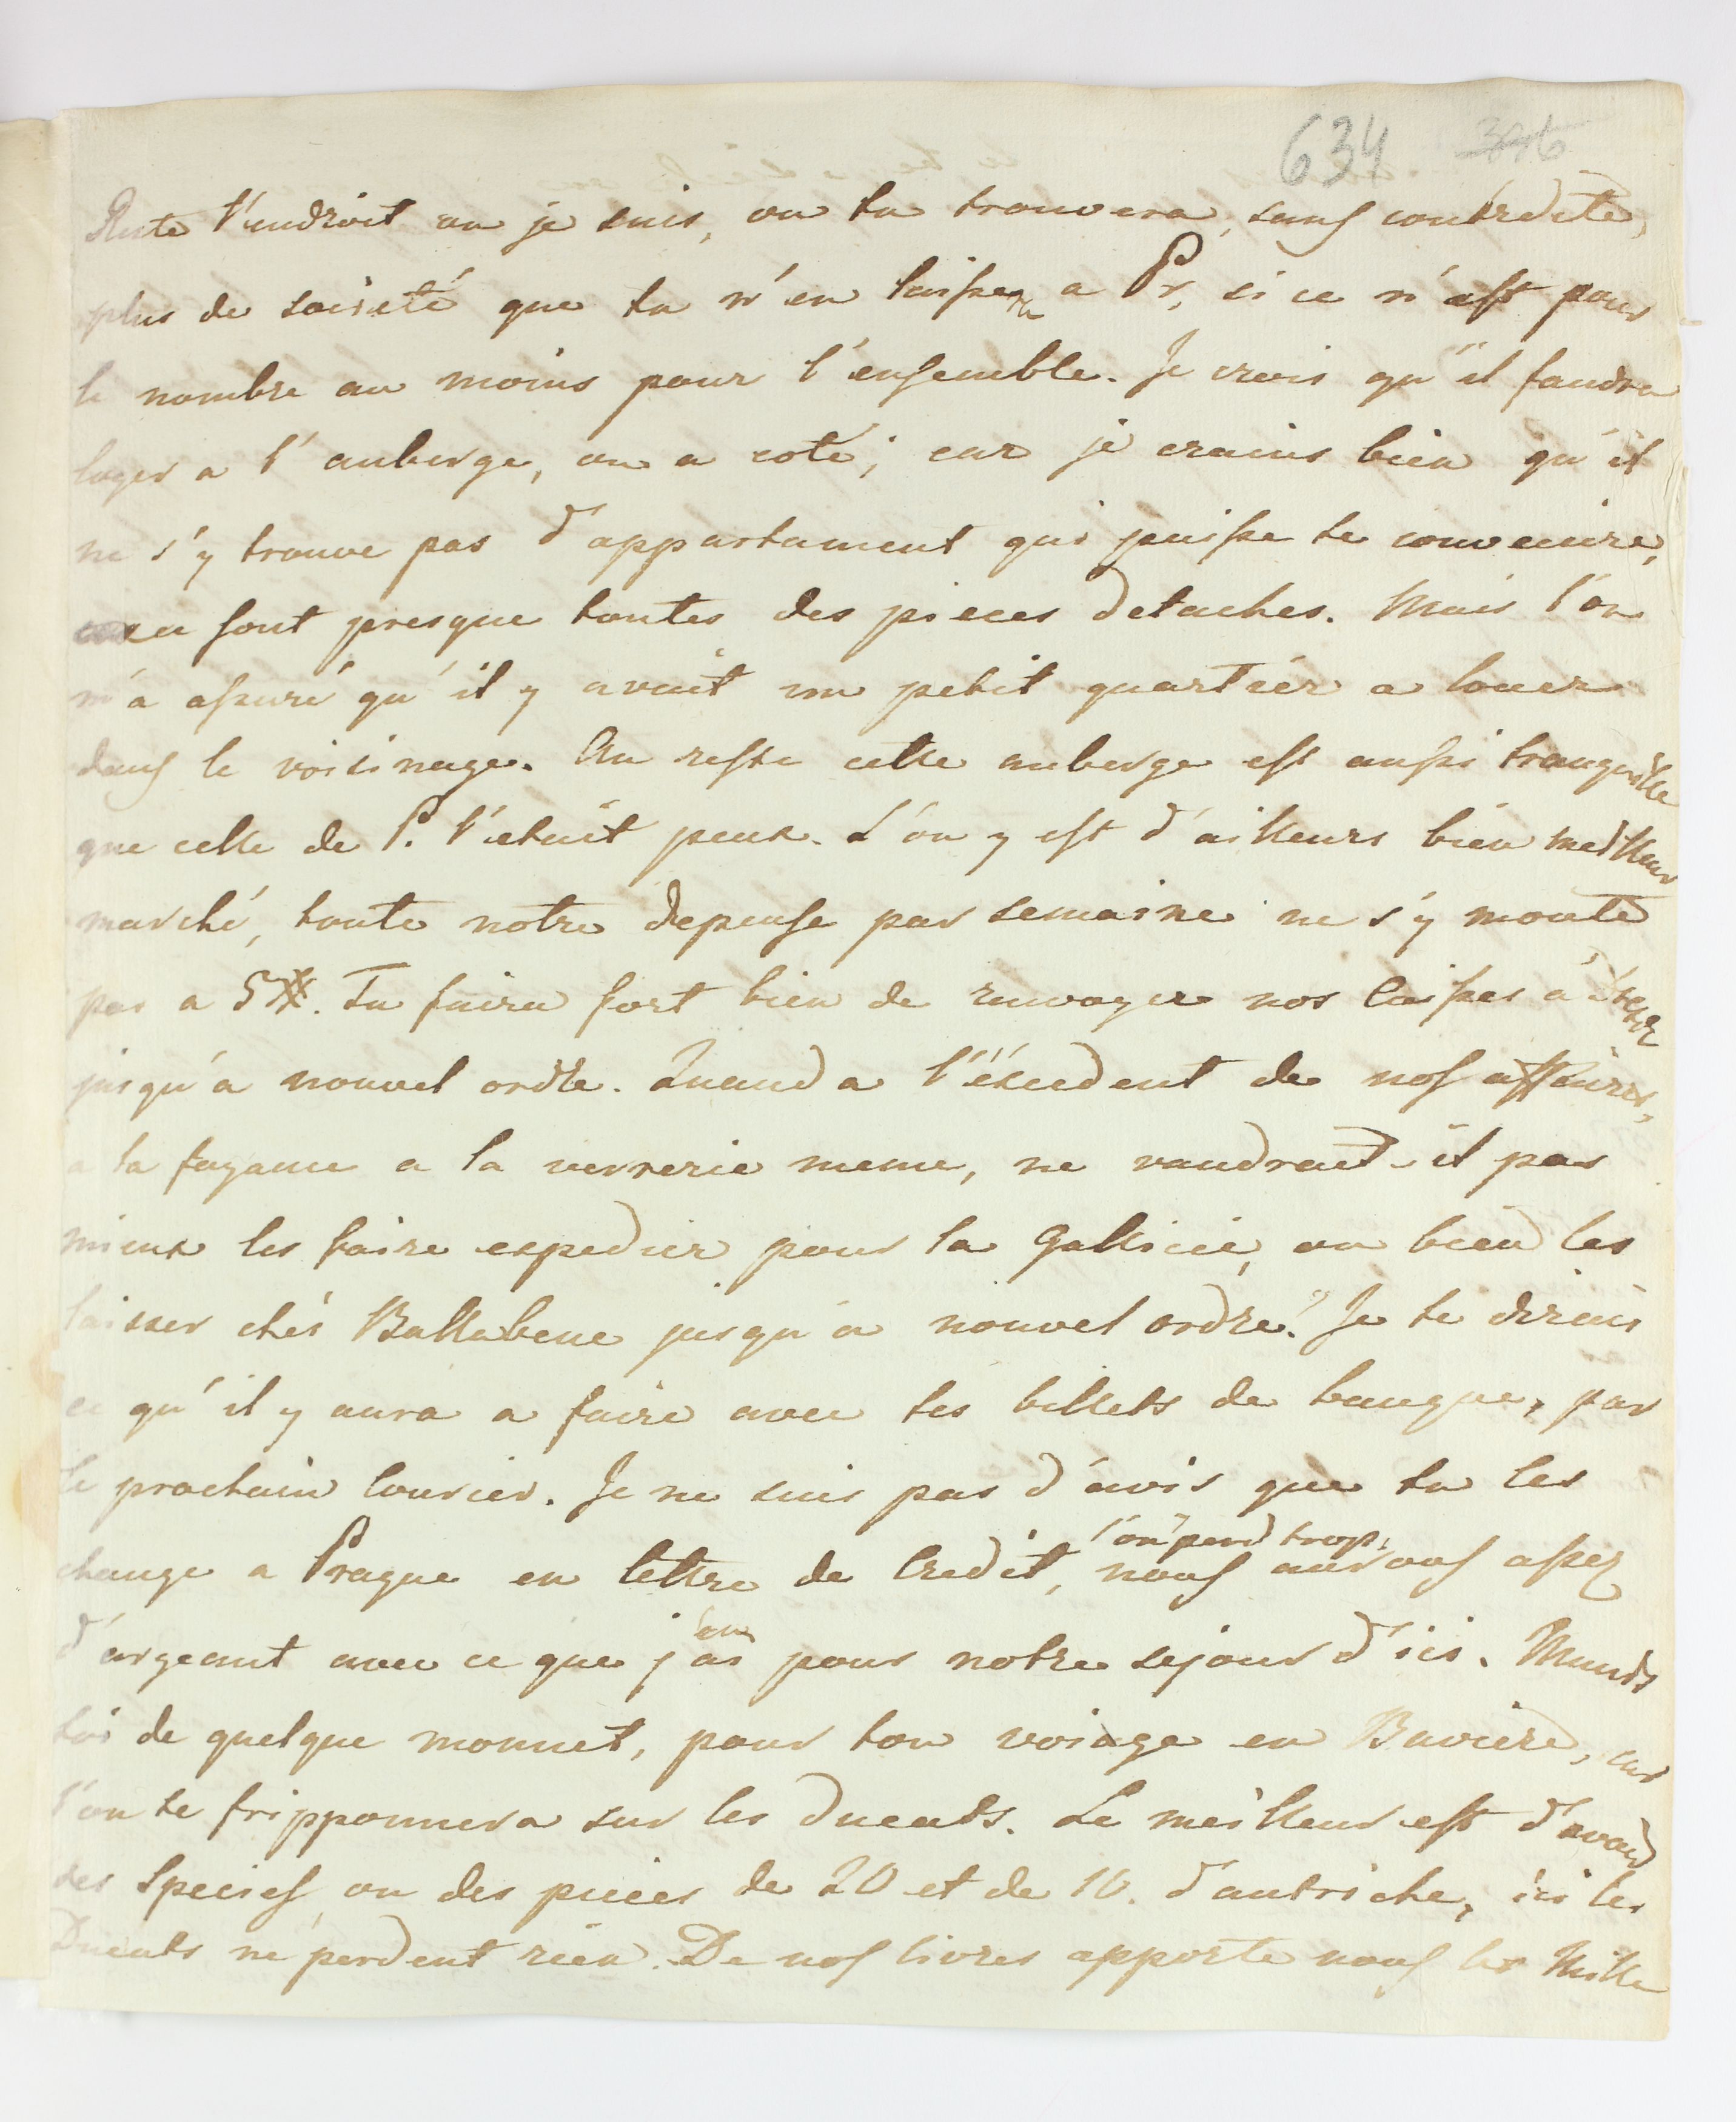 634 346
Reste l'endroit ou je suis, ou tu trouvera, sans contredite,
plus de soisieté que tu n'en laissera a Pr, si ce n'est pour
le nombre au moins pour l'ensemble. Je crois qu'il faudra
loger a l'auberge, ou a coté; car je crains bien qu'il
ne s'y trouve pas d'appartament qui puisse te convenire,
ce sont presque toutes des pieces detaches. Mais l'on
m'a assuré qu'il y avait un petit quartiér a louer
dans le voisinage. Au reste cette auberge est aussi tranquille
que celle de P. l'etait peux. L'on y est d'ailleurs bien meilleur
marché, toute notre depense par semaine ne s'y monte
pas a 5 #. Tu faira fort bien de renvoyer nos Caisses à
jusqu'a nouvel ordre. Quand a l'éxcedent de nos affaires,
a la fayance a la verrerie meme, ne vaudrait-il pas
mieux les faire expedier pour la Gallicie, ou bien les
laisser chés Ballabene jusqu'a nouvel ordre? Je te dirais
ce qu'il y aura a faire avec tes billets de banque, par
le prochain Courier. Je ne suis pas d'avis que tu les
change a Prague en lettre de Credit, l'on perd trop, nous aurons assez
d'argeant avec ce que j'en ai pour notre sejour d'ici. Munis
toi de quelque monnet, pour ton voiage en Baviére, car
l'on te fripponnera sur les Ducats. Le meilleur est d'avoir
des Species, ou des pieces de 20 et de 10. d'autriche, ici les
Ducats ne perdent rien. De nos livres apporte nous les Mille